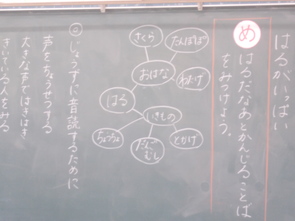 はるがいっぱい
め
はるだなあとかんじることば
をみつけよう。
さくら
たんぽぽ
おはな
はる
いきもの
ちょうちょ
だんごむし
とかげ
じょうずに音読するために
声を
する
大きな声ではきはき
きいている人をみる